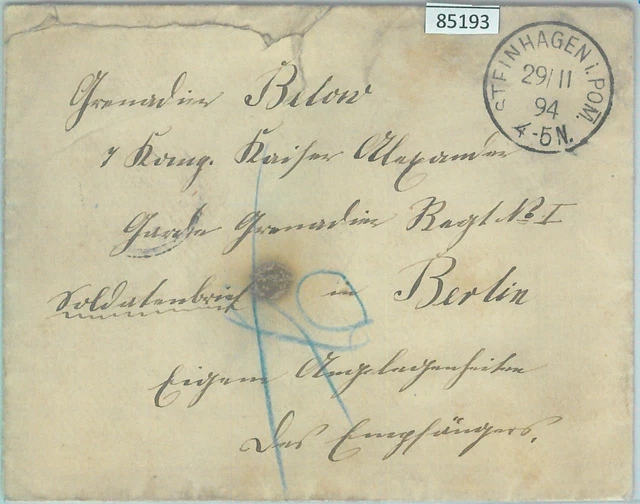 85193
STEINHAGEN i. POM.
29/11
94
4-5N.
Grenadier Below
7 Komg. Kaiser Alexander
Garde Grenadier Regt No I
Soldatenbrief in Berlin
Eigene Angelegenheiten
des Empfängers.